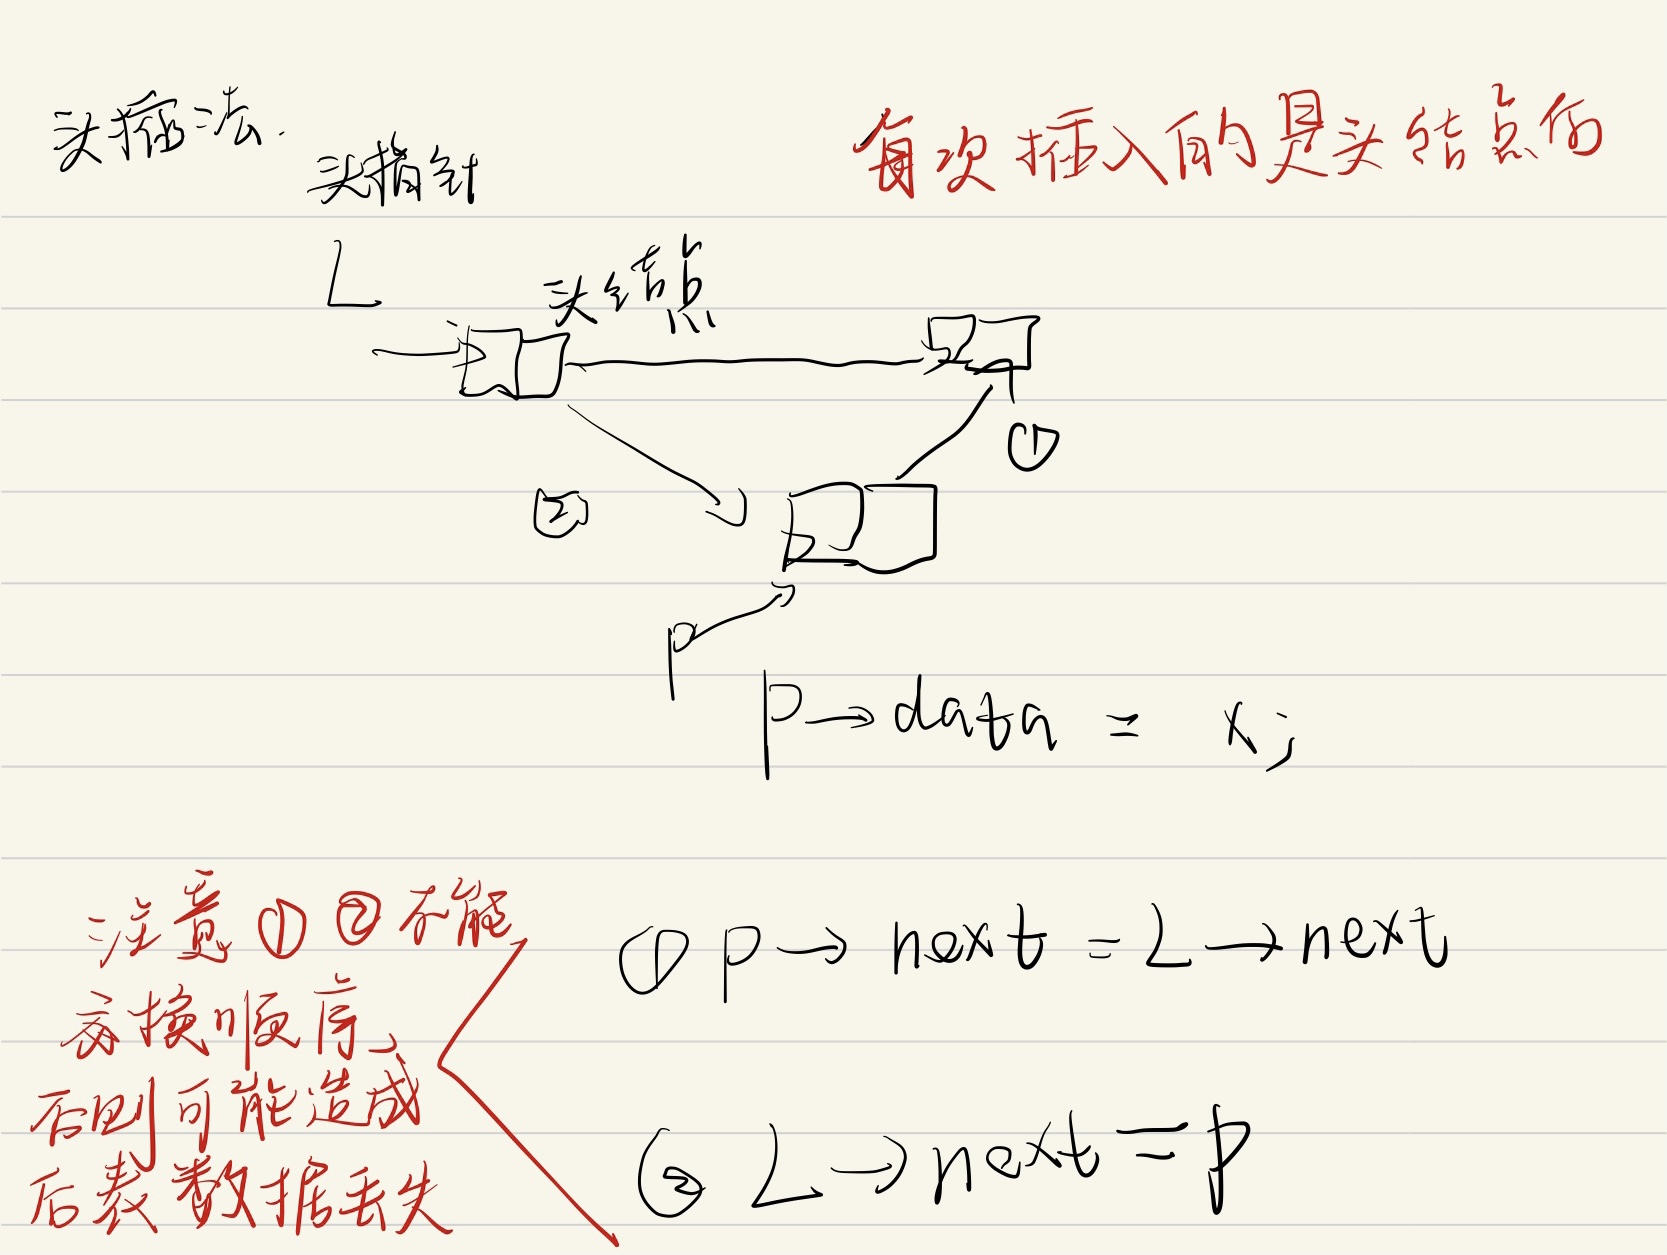 头插法.
头指针
每次插入的是头结点的
L
头结点
①
②
p
p→data = x;
注意①②不能
交换顺序、
否则可能造成
后表数据丢失
① p→next = L→next
② L→next = p